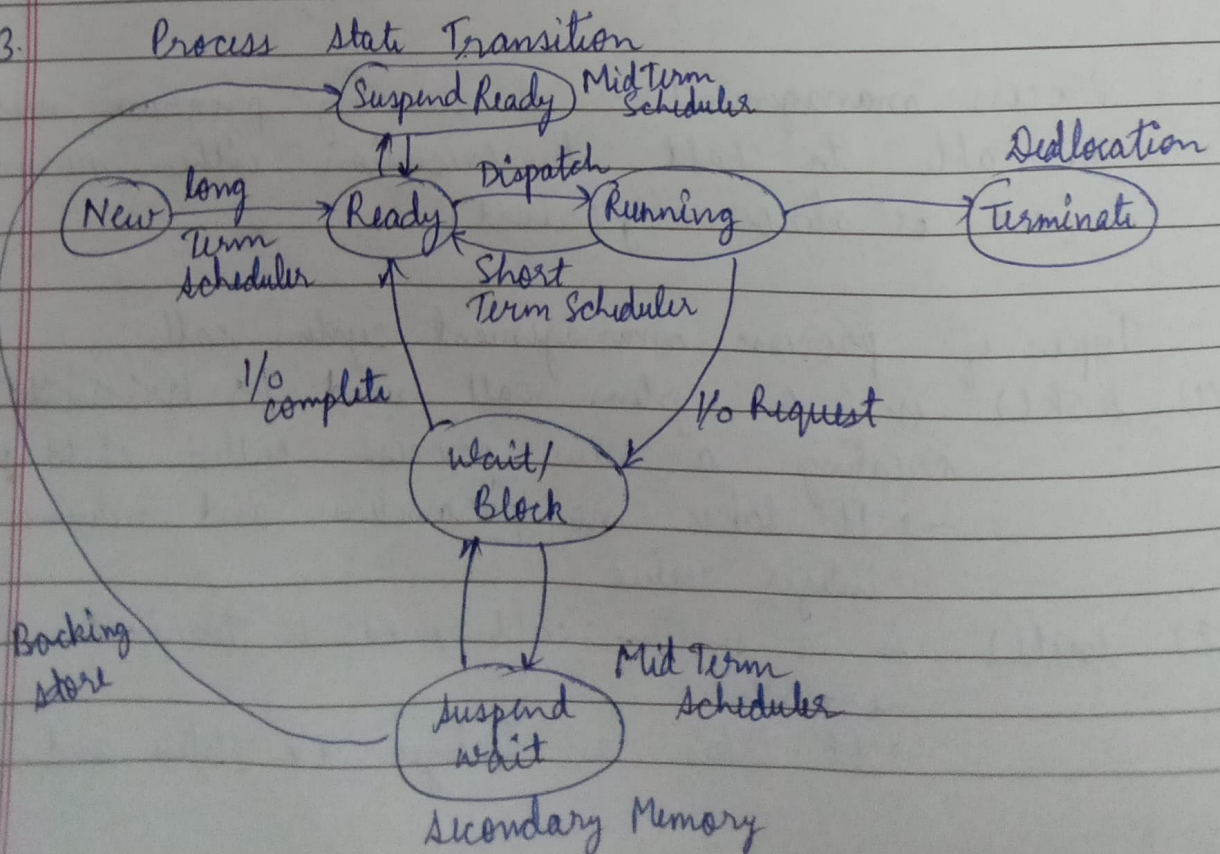 3. Process state Transition
Suspend Ready
Mid Term
Scheduler
Deallocation
Dispatch
long
New
Ready
Running
Terminate
Term
Scheduler
Short
Term Scheduler
I/o
complete
I/o Request
Wait/
Block
Backing
store
Mid Term
Scheduler
suspend
wait
Secondary Memory